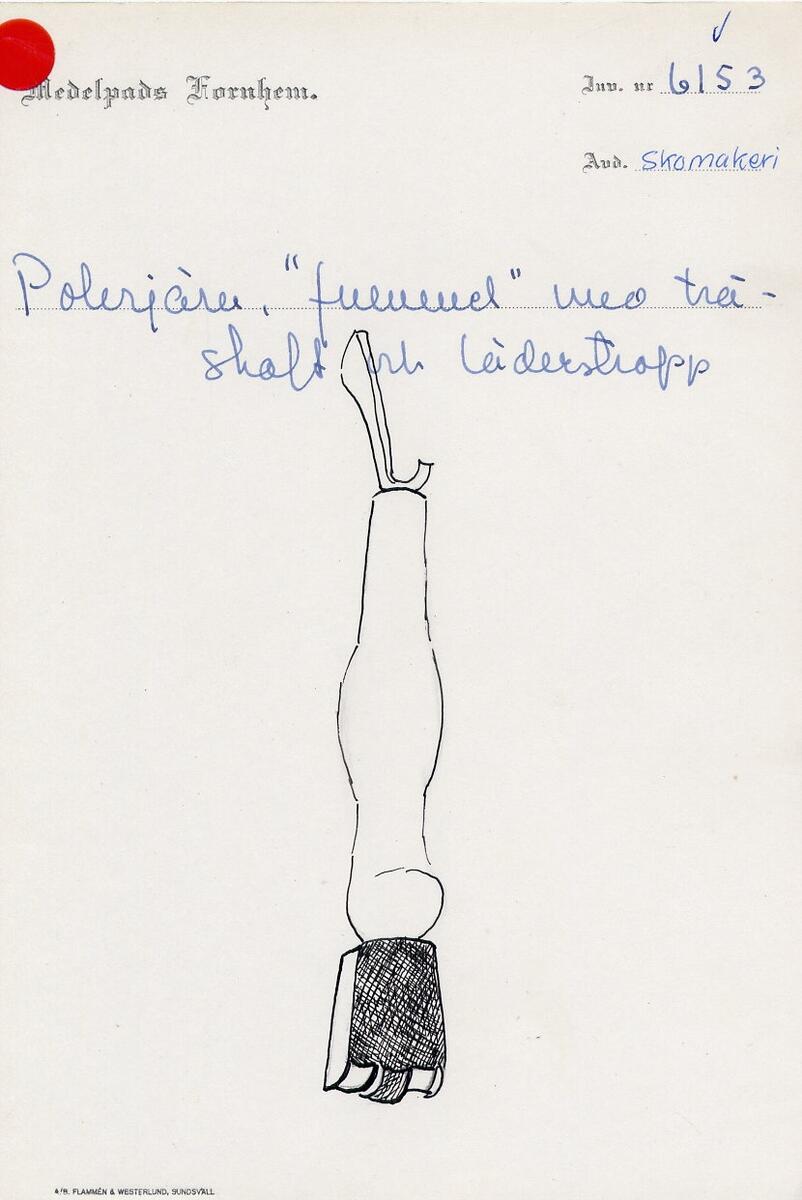 Medelpads Fornhem.
Inv. nr 6153
Avd. Skomakeri
Polerjärn, "fummel" med trä-
skaft och läderstropp
A/B. FLAMMÉN & WESTERLUND, SUNDSVALL